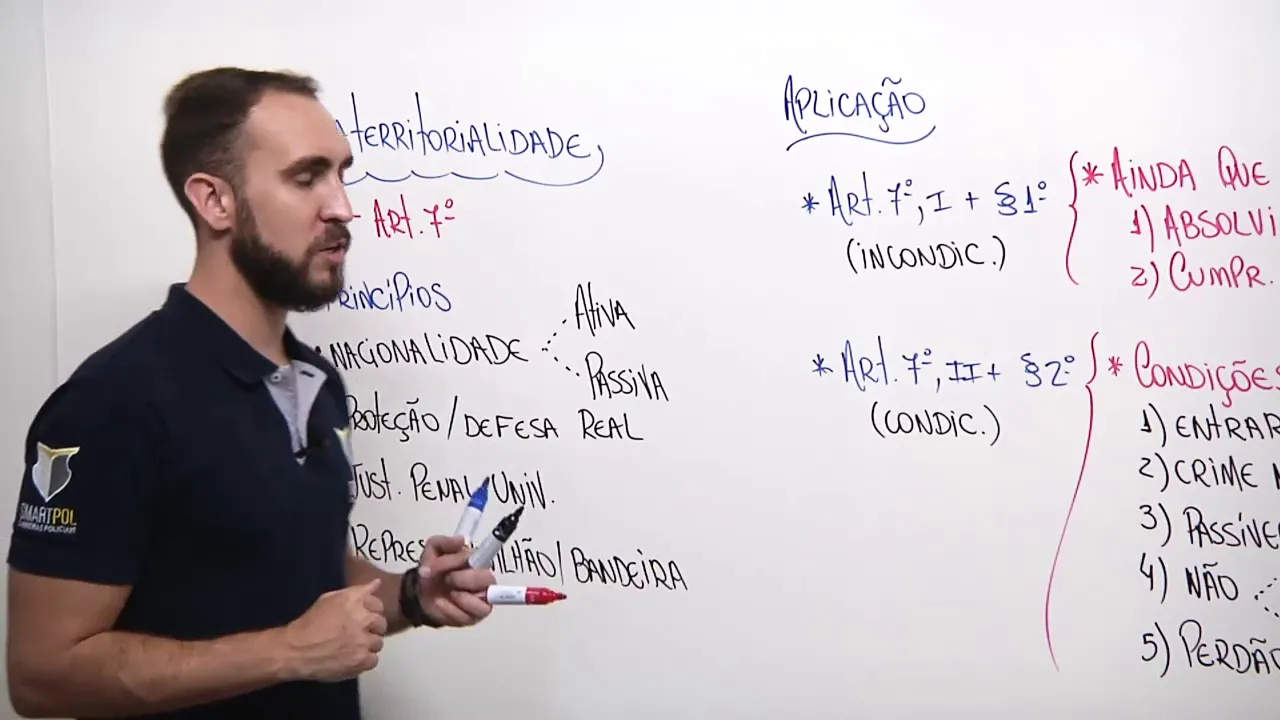 ATERRITORIALIDADE
- ART. 7º
PRINCÍPIOS
NACIONALIDADE
ATIVA
PASSIVA
PROTEÇÃO/DEFESA REAL
JUST. PENAL UNIV.
REPRES LHÃO/BANDEIRA
APLICAÇÃO
* ART. 7º, I + § 1º
(INCONDIC.)
* AINDA QUE
1) ABSOLVI
2) CUMPR.
* ART. 7º, II + § 2º
(CONDIC.)
* CONDIÇÕES
1) ENTRAR
2) CRIME
3) PASSÍVE
4) NÃO
5) PERDÃO
SMARTPOL
CARREIRAS POLICIAIS